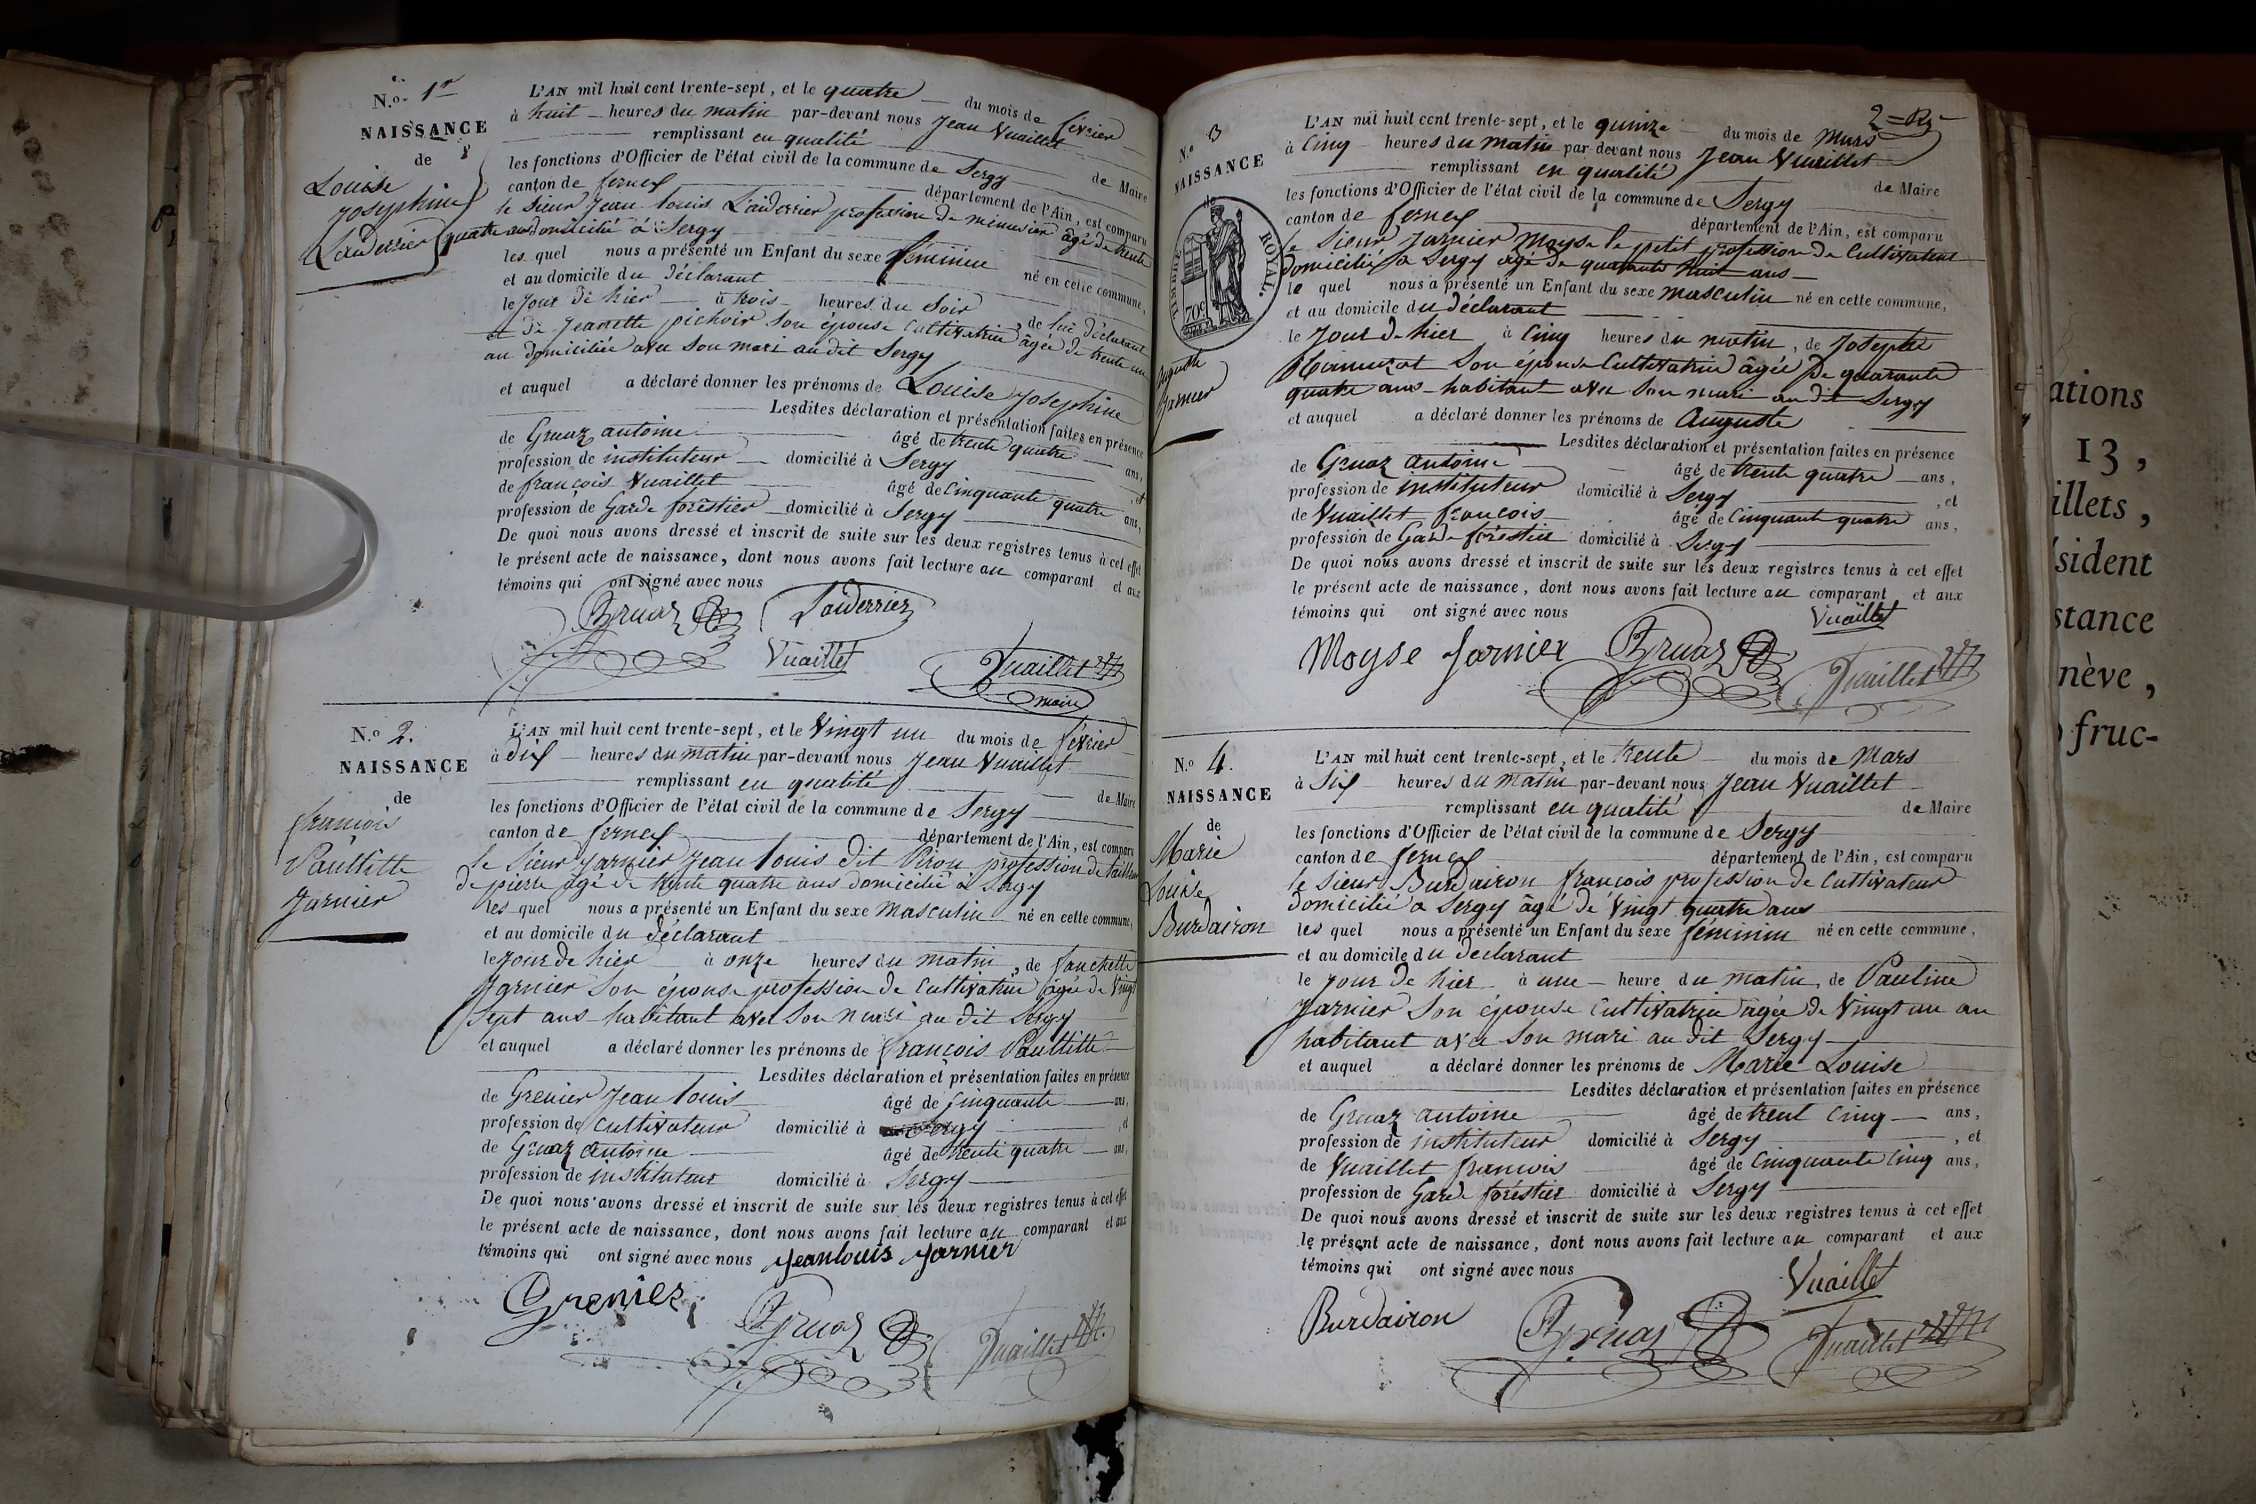 N.º 1er
NAISSANCE
de
Louise
Josephine
Laiderrier
L'AN mil huit cent trente-sept, et le quatre du mois de février
à huit heures du matin par-devant nous Jean Vuaillet
remplissant en qualité de Maire
les fonctions d'Officier de l'état civil de la commune de Sergy
canton de fernex département de l'Ain, est comparu
le Sieur Jean Louis Laiderrier profession de menuisier âgé de trente
quatre ans domicilié à Sergy
les quel nous a présenté un Enfant du sexe féminin né en cette commune,
et au domicile du déclarant
le jour de hier à trois heures du soir, de lui déclarant
et de Jeanette pichoir son épouse Cultivatrice âgée de trente un
an domiciliée avec son mari au dit Sergy
et auquel a déclaré donner les prénoms de Louise Josephine
Lesdites déclaration et présentation faites en présence
de Gruaz antoine âgé de trente quatre ans,
profession de instituteur domicilié à Sergy, et
de françois Vuaillet âgé de Cinquante quatre ans,
profession de Garde forestier domicilié à Sergy
De quoi nous avons dressé et inscrit de suite sur les deux registres tenus à cet effet
le présent acte de naissance, dont nous avons fait lecture au comparant et aux
témoins qui ont signé avec nous
Gruaz Laiderrier
Vuaillet Vuaillet
maire
N.º 2.
NAISSANCE
de
françois
Paulitte
Jarnier
L'AN mil huit cent trente-sept, et le Vingt un du mois de février
à dix heures du matin par-devant nous Jean Vuaillet
remplissant en qualité de Maire
les fonctions d'Officier de l'état civil de la commune de Sergy
canton de fernex département de l'Ain, est comparu
le Sieur Jarnier Jean Louis dit Piron profession de tailleur
de pierre âgé de trente quatre ans domicilié à Sergy
les quel nous a présenté un Enfant du sexe Masculin né en cette commune,
et au domicile du déclarant
le Jour de hier à onze heures du matin, de fanchette
Jarnier son épouse profession de Cultivatrice âgée de Vingt
sept ans habitant avec son mari au dit Sergy
et auquel a déclaré donner les prénoms de françois Paulitte
Lesdites déclaration et présentation faites en présence
de Grenier Jean Louis âgé de Cinquante ans,
profession de Cultivateur domicilié à Sergy, et
de Gruaz antoine âgé de trente quatre ans,
profession de instituteur domicilié à Sergy
De quoi nous avons dressé et inscrit de suite sur les deux registres tenus à cet effet
le présent acte de naissance, dont nous avons fait lecture au comparant et aux
témoins qui ont signé avec nous Jeanlouis Jarnier
Grenier Gruaz Vuaillet
2
N.º 3
NAISSANCE
de
TIMBRE ROYAL.
70c
Auguste
Jarnier
L'AN mil huit cent trente-sept, et le quinze du mois de Mars
à Cinq heures du matin par-devant nous Jean Vuaillet
remplissant en qualité de Maire
les fonctions d'Officier de l'état civil de la commune de Sergy
canton de fernex département de l'Ain, est comparu
le Sieur Jarnier Moyse le petit profession de Cultivateur
domicilié à Sergy âgé de quarante huit ans
le quel nous a présenté un Enfant du sexe masculin né en cette commune,
et au domicile du déclarant
le Jour de hier à Cinq heures du matin, de Josephte
son épouse Cultivatrice âgée de quarante
quatre ans habitant avec son mari au dit Sergy
et auquel a déclaré donner les prénoms de Auguste
Lesdites déclaration et présentation faites en présence
de Gruaz antoine âgé de trente quatre ans,
profession de instituteur domicilié à Sergy, et
de Vuaillet françois âgé de Cinquante quatre ans,
profession de Garde foréstier domicilié à Sergy
De quoi nous avons dressé et inscrit de suite sur les deux registres tenus à cet effet
le présent acte de naissance, dont nous avons fait lecture au comparant et aux
témoins qui ont signé avec nous Vuaillet
Moyse Jarnier Gruaz Vuaillet
N.º 4.
NAISSANCE
de
Marie
Louise
Burdairon
L'AN mil huit cent trente-sept, et le trente du mois de Mars
à Six heures du matin par-devant nous Jean Vuaillet
remplissant en qualité de Maire
les fonctions d'Officier de l'état civil de la commune de Sergy
canton de fernex département de l'Ain, est comparu
le Sieur Burdairon françois profession de Cultivateur
domicilié à Sergy âgé de Vingt quatre ans
les quel nous a présenté un Enfant du sexe féminin né en cette commune,
et au domicile du déclarant
le jour de hier à une heure du matin, de Pauline
Jarnier son épouse Cultivatrice âgée de Vingt un an
habitant avec son mari au dit Sergy
et auquel a déclaré donner les prénoms de Marie Louise
Lesdites déclaration et présentation faites en présence
de Gruaz antoine âgé de trent cinq ans,
profession de instituteur domicilié à Sergy, et
de Vuaillet françois âgé de Cinquante cinq ans,
profession de Garde foréstier domicilié à Sergy
De quoi nous avons dressé et inscrit de suite sur les deux registres tenus à cet effet
le présent acte de naissance, dont nous avons fait lecture au comparant et aux
témoins qui ont signé avec nous
Vuaillet
Burdairon Gruaz Vuaillet
ations
13,
illets,
sident
stance
nève,
fruc-